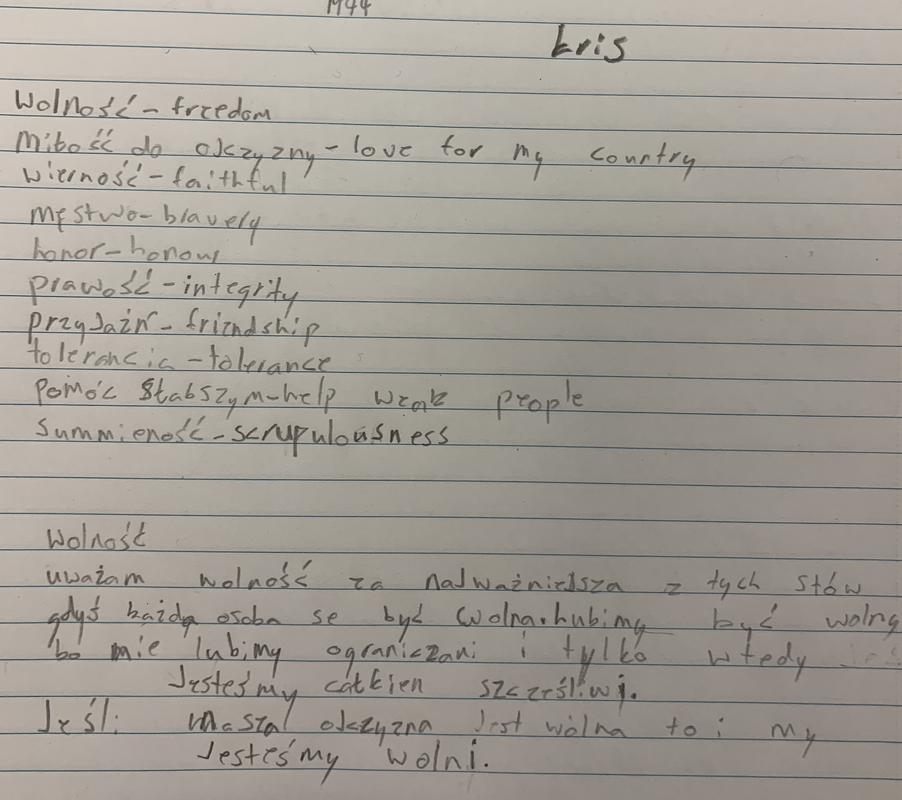 1944
kris
Wolność - freedom
Miłość do ojczyzny - love for my country
wierność - faithful
męstwo - bravery
honor - honour
prawość - integrity
przyjaźń - friendship
tolerancia - tolerance
pomóc słabszym - help weak people
Summieność - scrupulousness
Wolność
uważam wolność za najważniejsza z tych słów
gdyś każdą osoba se być wolna. lubimy być wolną
bo mie lubimy ograniczani i tylko wtedy
Jesteśmy całkien szcześliwi.
Jeśli maszal ojczyzna Jest wolna to i my
Jesteśmy wolni.